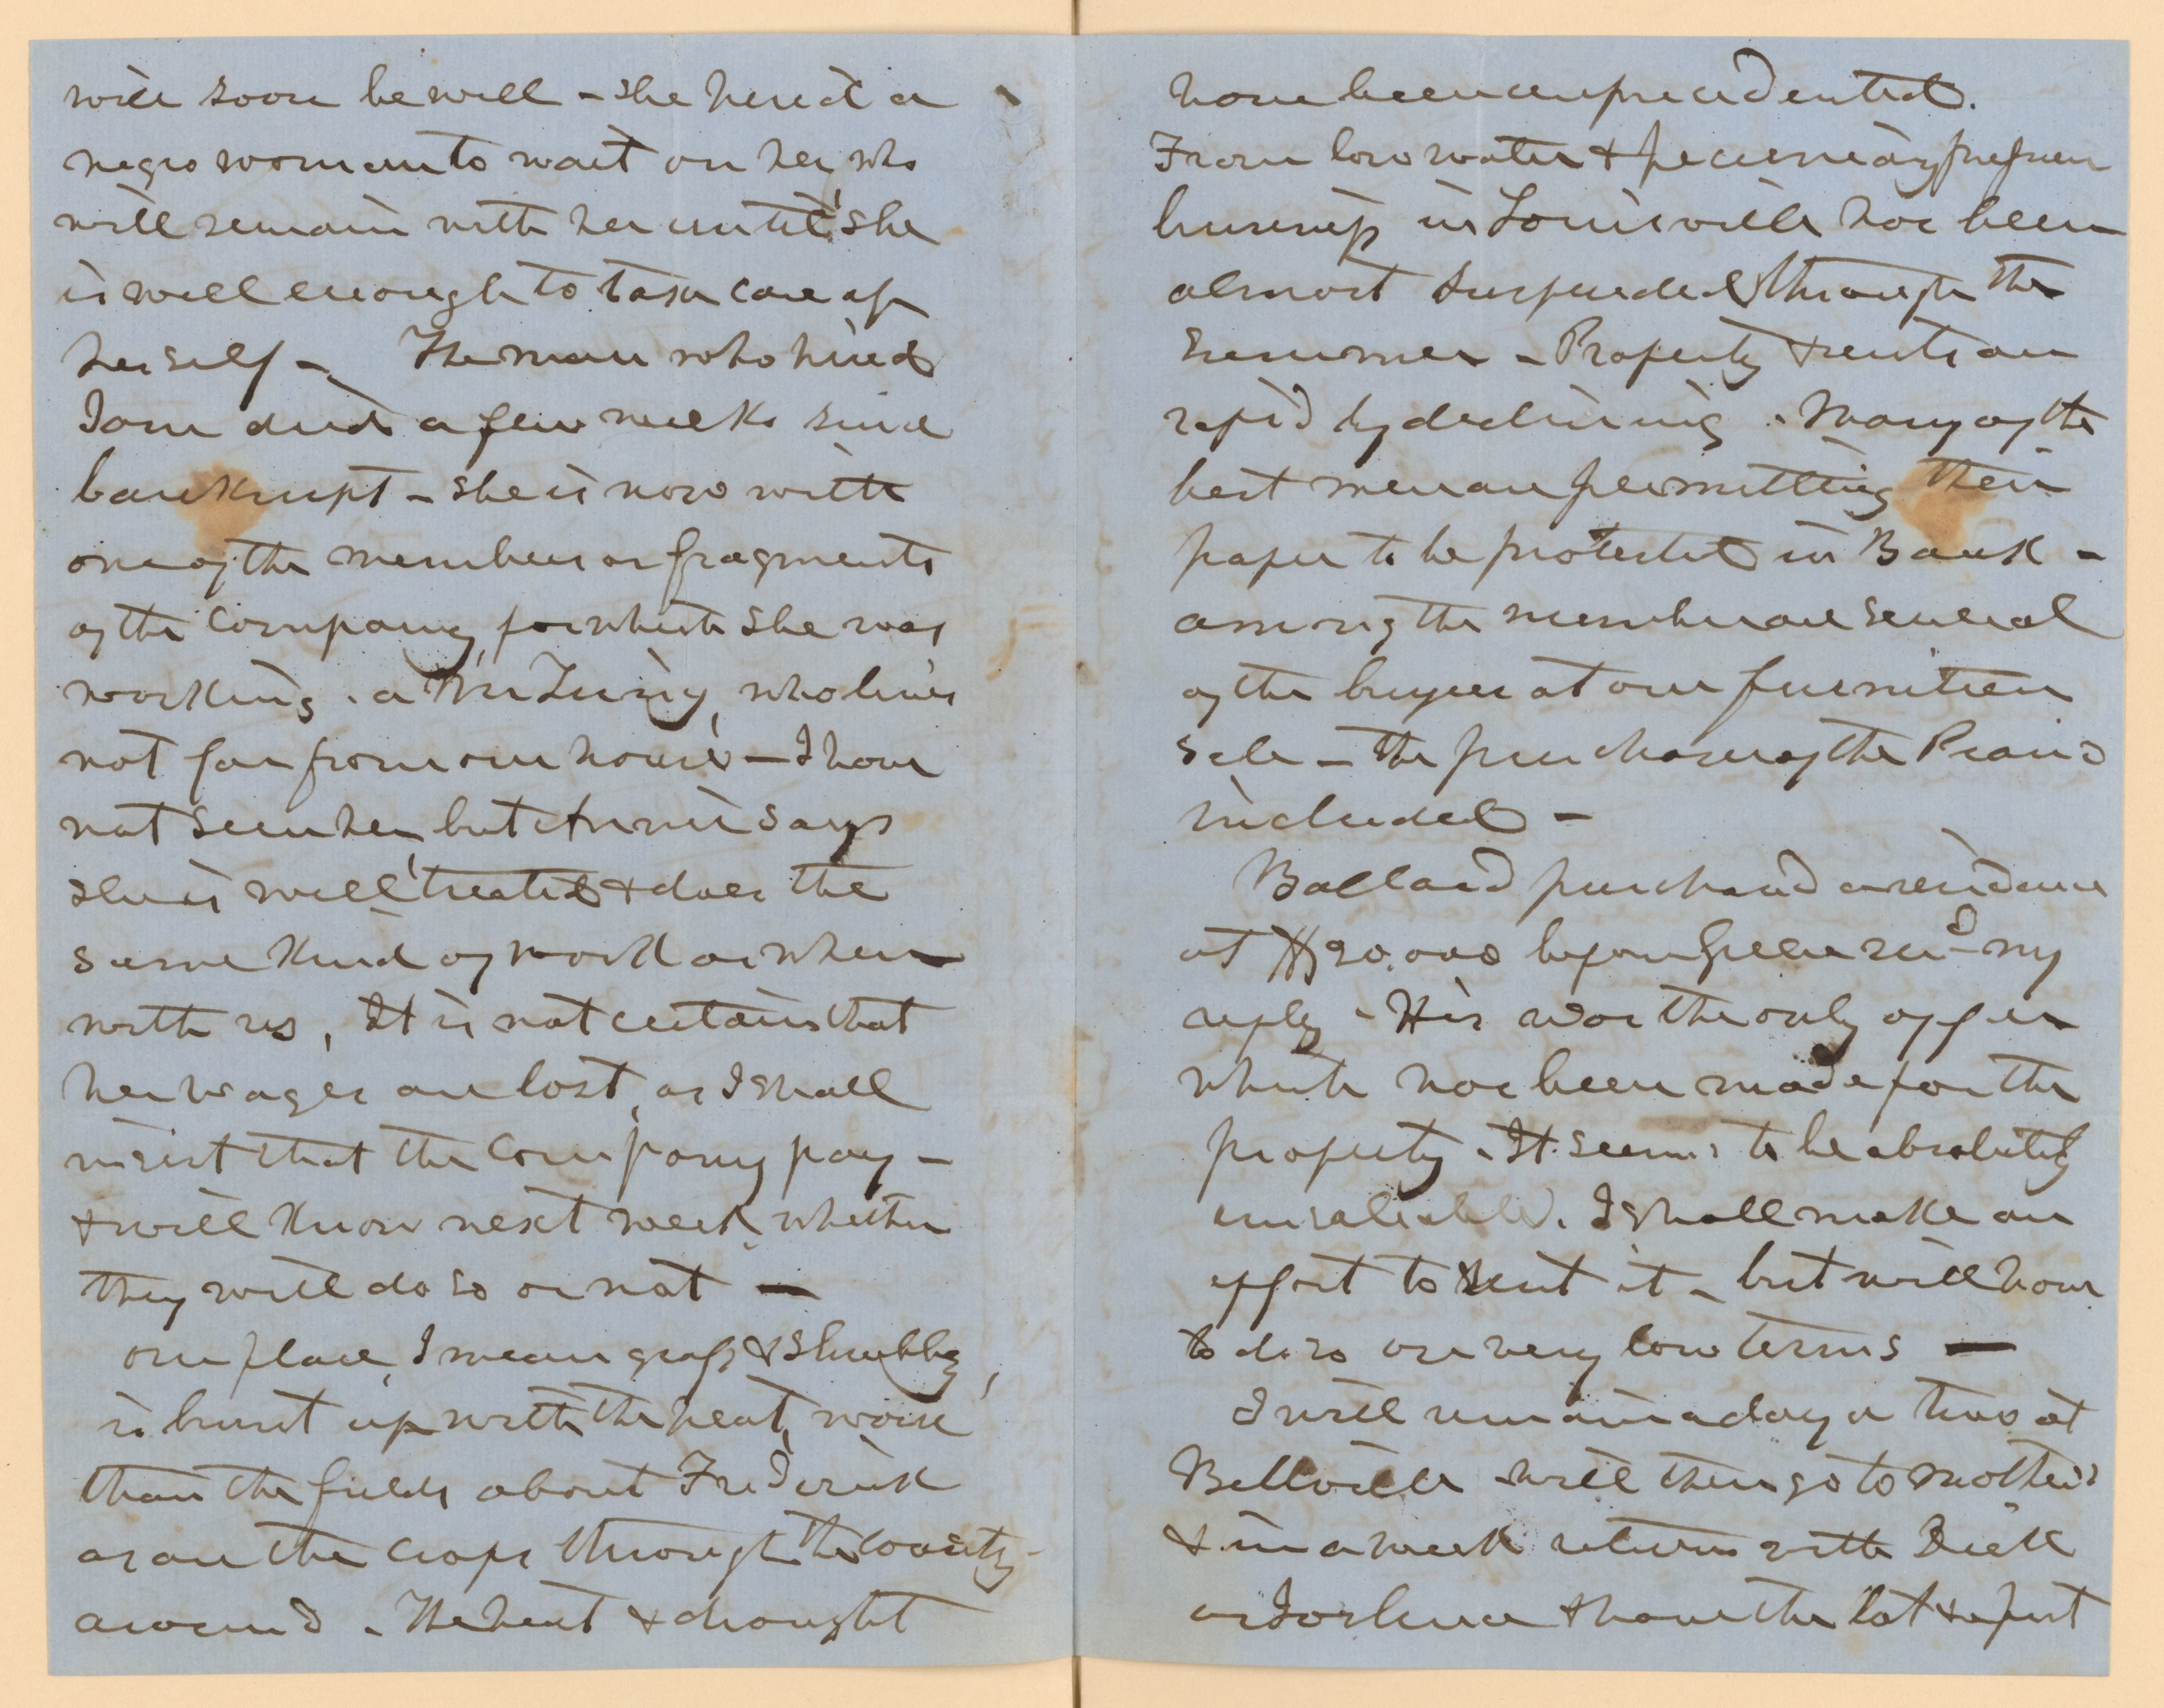 will soon be well - she hired a
negro woman to wait on her, who
will remain with her until she
is well enough to take care of
herself - The man who hired
Jane died a few weeks since
bankrupt - she is now with
one of the members or fragments
of the Company, for which she was
working. a Mr who lives
not far from our house - I have
not seen her, but Annie says
she is well treated & does the
same kind of work as when
with us, It is not certain that
her wages are lost, as I shall
insist that the Company pay -
& will know next week, whether
they will do so or not -
our place, I mean grass & shrubbery,
is burnt up with the heat, worse
than the fields about Frederick
as are the crops through the country
around. The heat & drought
have been unprecedented.
From low water & pecuniary pressure
business in Louisville has been
almost suspended through the
Summer - Property & rents are
rapidly declining. Many of the
best men are permitting their
paper to be protested in Bank -
among the number are several
of the buyers at our furniture
sale - the purchaser of the Piano
included -
Ballard purchased a residence
at $20,000 before Greene recd my
reply - His was the only offer
which has been made for the
property. It seems to be absolutely
unsaleable. I shall make an
effort to rent it - but will have
to do so on very low terms -
I will remain a day or two at
Bellville will then go to Mother's
& in a week return with Dick
or & have the lot